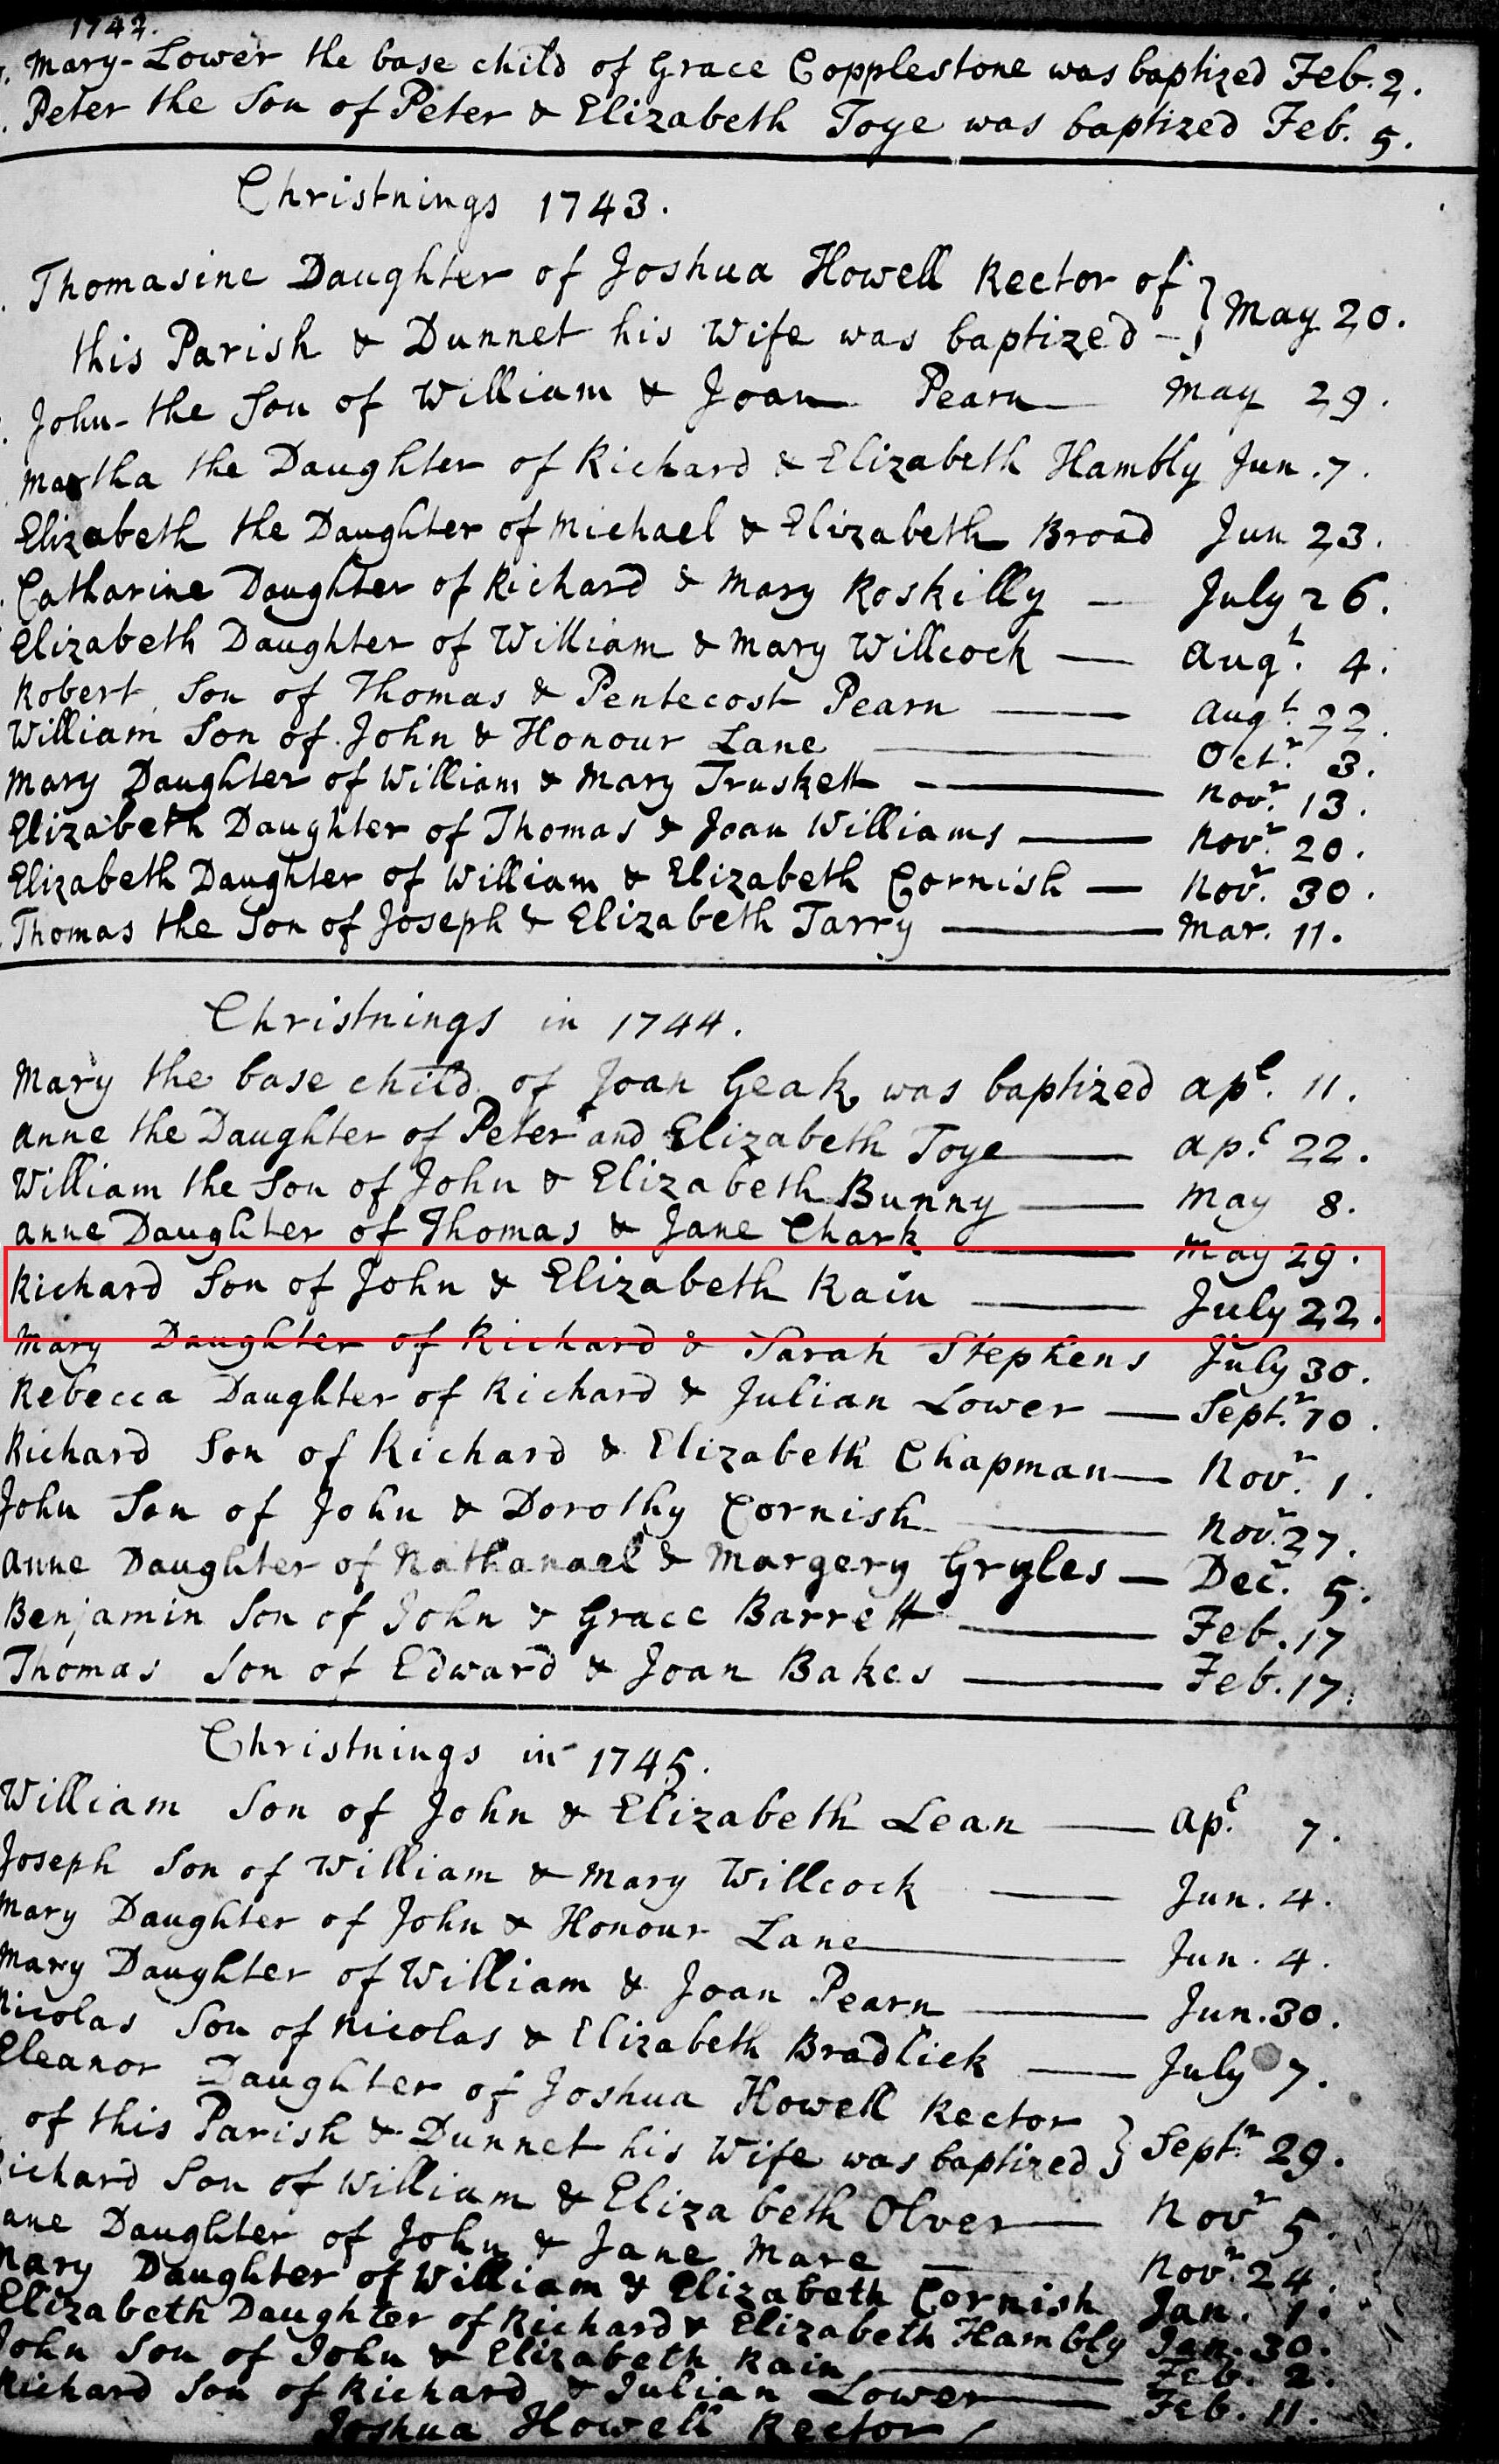 1742.
Mary-Lower the base child of Grace Copplestone was baptized Feb. 2.
Peter the Son of Peter & Elizabeth Toye was baptized Feb. 5.
Christnings 1743.
Thomasine Daughter of Joshua Howell Rector of } May 20.
this Parish & Dunnet his Wife was baptized -
John - the Son of William & Joan Pearn May 29.
Martha the Daughter of Richard & Elizabeth Hambly Jun. 7.
Elizabeth the Daughter of Michael & Elizabeth Broad Jun 23.
Catharine Daughter of Richard & Mary Roskilly — July 26.
Elizabeth Daughter of William & Mary Willcock — Augt. 4.
Robert Son of Thomas & Pentecost Pearn — Augt. 22.
William Son of John & Honour Lane — Octr. 3.
Mary Daughter of William & Mary Truskett — Novr. 13.
Elizabeth Daughter of Thomas & Joan Williams — Novr. 20.
Elizabeth Daughter of William & Elizabeth Cornish — Novr. 30.
Thomas the Son of Joseph & Elizabeth Tarry — Mar. 11.
Christnings in 1744.
Mary the base child of Joan Geak was baptized Apl. 11.
Anne the Daughter of Peter and Elizabeth Toye — Apl. 22.
William the Son of John & Elizabeth Bunny — May 8.
Anne Daughter of Thomas & Jane Chark — May 29.
Richard Son of John & Elizabeth Rain — July 22.
Mary Daughter of Richard & Sarah Stephens July 30.
Rebecca Daughter of Richard & Julian Lower — Septr. 10.
Richard Son of Richard & Elizabeth Chapman — Novr. 1.
John Son of John & Dorothy Cornish — Novr. 27.
Anne Daughter of Nathanael & Margery Gryles — Decr. 5.
Benjamin Son of John & Grace Barrett — Feb. 17
Thomas Son of Edward & Joan Bakes — Feb. 17.
Christnings in 1745.
William Son of John & Elizabeth Lean — Apl. 7.
Joseph Son of William & Mary Willcock — Jun. 4.
Mary Daughter of John & Honour Lane — Jun. 4.
Mary Daughter of William & Joan Pearn — Jun. 30.
Nicolas Son of Nicolas & Elizabeth Bradlick — July 7.
Eleanor Daughter of Joshua Howell Rector } Septr. 29.
of this Parish & Dunnet his Wife was baptized
Richard Son of William & Elizabeth Olver — Novr 5.
Jane Daughter of John & Jane Mare — Novr. 24.
Mary Daughter of William & Elizabeth Cornish Jan. 1.
Elizabeth Daughter of Richard & Elizabeth Hambly Jan. 30.
John Son of John & Elizabeth Rain — Feb. 2.
Richard Son of Richard & Julian Lower — Feb. 11.
Joshua Howell Rector